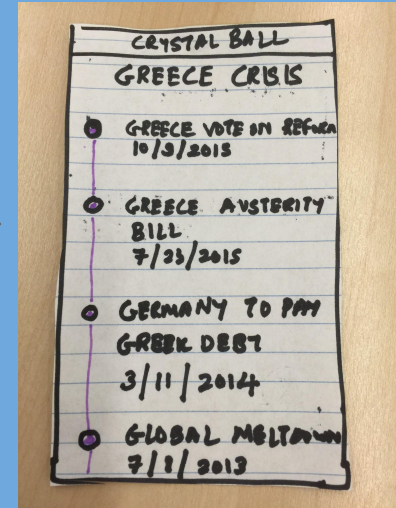 CRYSTAL BALL
GREECE CRISIS
GREECE VOTE ON REFORM
10/9/2015
GREECE AUSTERITY
BILL
7/23/2015
GERMANY TO PAY
GREEK DEBT
3/11/2014
GLOBAL MELTDOWN
7/8/2013